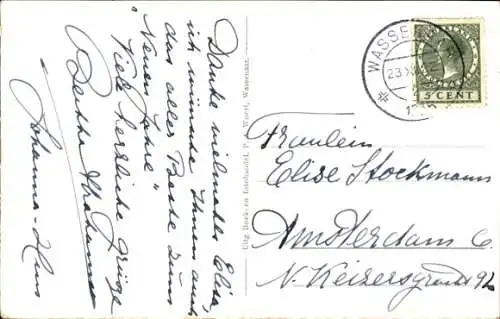 Danke vielmals Elise,
ich wünsche Ihnen auch
das aller Beste zum
Neuen Jahre"
Viele herzliche Grüsse
Bertha
Johanna-
Uitg. Boek- en fotohandel, P. v. Woert, Wassenaar.
WASSEN
23 XII
5 CENT
Fräulein
Elise Stockmann
Amsterdam C.
N. Keizersgracht 92